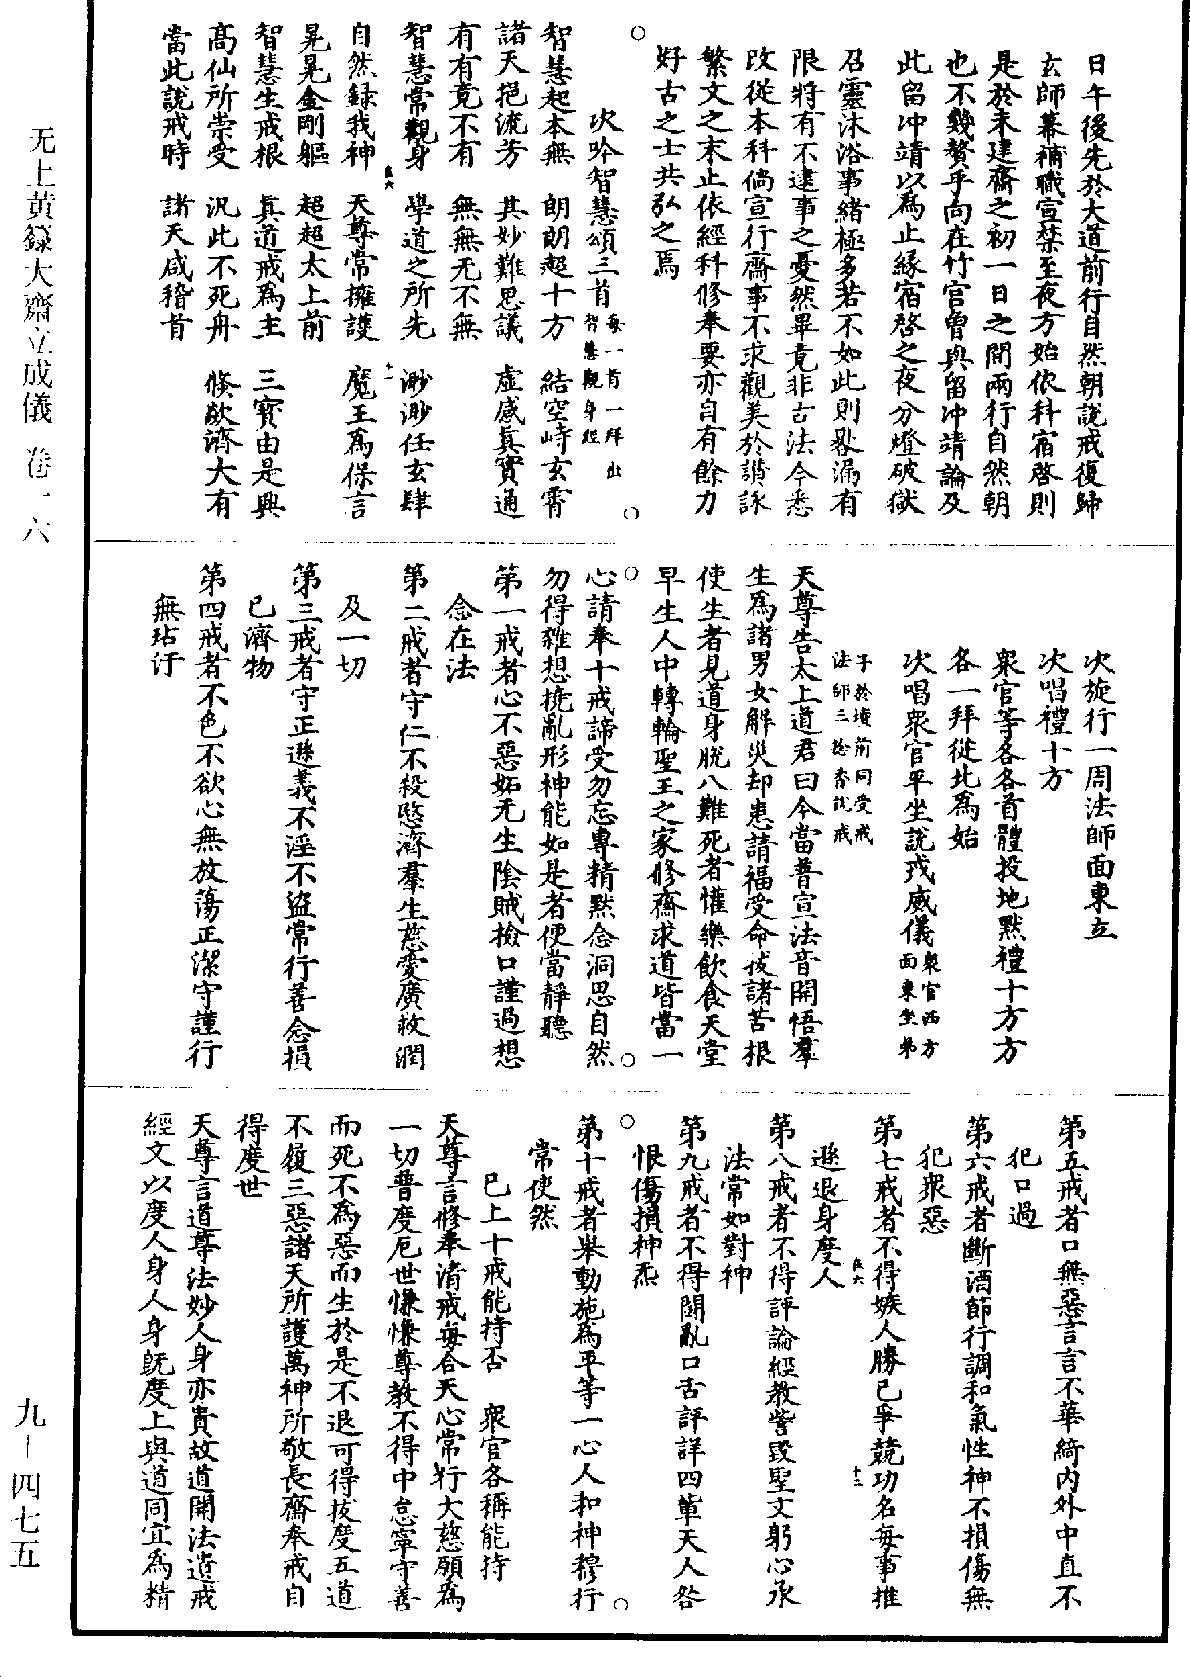 日午後先於大道前行自然朝說戒復歸
玄師幕補職宣禁至夜方始依科宿啓則
是於未建齋之初一日之間兩行自然朝
也不幾贅乎向在竹宮曾與留冲靖論及
此留冲靖以為止緣宿啓之夜分燈破獄
召靈沐浴事緒極多若不如此則晷漏有
限將有不逮事之憂然畢竟非古法今悉
改從本科倘宣行齋事不求觀美於讃詠
繁文之末止依經科修奉要亦自有餘力
好古之士共弘之焉
次吟智慧頌三首每一首一拜出
智慧觀身經
智慧起本無 朗朗超十方 結空峙玄霄
諸天挹流芳 其妙難思議 虛感真實通
有有竟不有 無無无不無
智慧常觀身 學道之所先 渺渺任玄肆
自然錄我神 天尊常擁護 魔王為保言
晃晃金剛軀 超超太上前
智慧生戒根 真道戒為主 三寶由是興
高仙所崇受 汎此不死舟 倏欻濟大有
當此說戒時 諸天咸稽首
次旋行一周法師面東立
次唱禮十方
眾官等各各首體投地默禮十方方
各一拜從北為始
次唱眾官平坐說戒威儀眾官西方
面東坐弟
子於壇前同受戒
法師三捻香說戒
天尊告太上道君曰今當普宣法音開悟羣
生為諸男女解災却患請福受命拔諸苦根
使生者見道身脫八難死者懽樂飲食天堂
早生人中轉輪聖王之家修齋求道皆當一
心請奉十戒諦受勿忘專精默念洞思自然
勿得雜想撓亂形神能如是者便當靜聽
第一戒者心不惡妬无生陰賊撿口謹過想
念在法
第二戒者守仁不殺愍濟羣生慈愛廣救潤
及一切
第三戒者守正遜義不淫不盜常行善念損
己濟物
第四戒者不色不欲心無放蕩正潔守謹行
無玷汙
第五戒者口無惡言言不華綺內外中直不
犯口過
第六戒者斷酒節行調和氣性神不損傷無
犯眾惡
第七戒者不得嫉人勝己爭競功名每事推
遜退身度人
第八戒者不得評論經教訾毀聖文躬心承
法常如對神
第九戒者不得鬭亂口舌評詳四軰天人咎
恨傷損神炁
第十戒者舉動施為平等一心人和神穆行
常使然
已上十戒能持否 眾官各稱能持
天尊言修奉清戒每合天心常行大慈願為
一切普度厄世慊慊尊教不得中怠寧守善
而死不為惡而生於是不退可得拔度五道
不履三惡諸天所護萬神所敬長齋奉戒自
得度世
天尊言道尊法妙人身亦貴故道開法遺戒
經文以度人身人身既度上與道同宜為精
无上黃籙大齋立成儀 卷一六
九—四七五